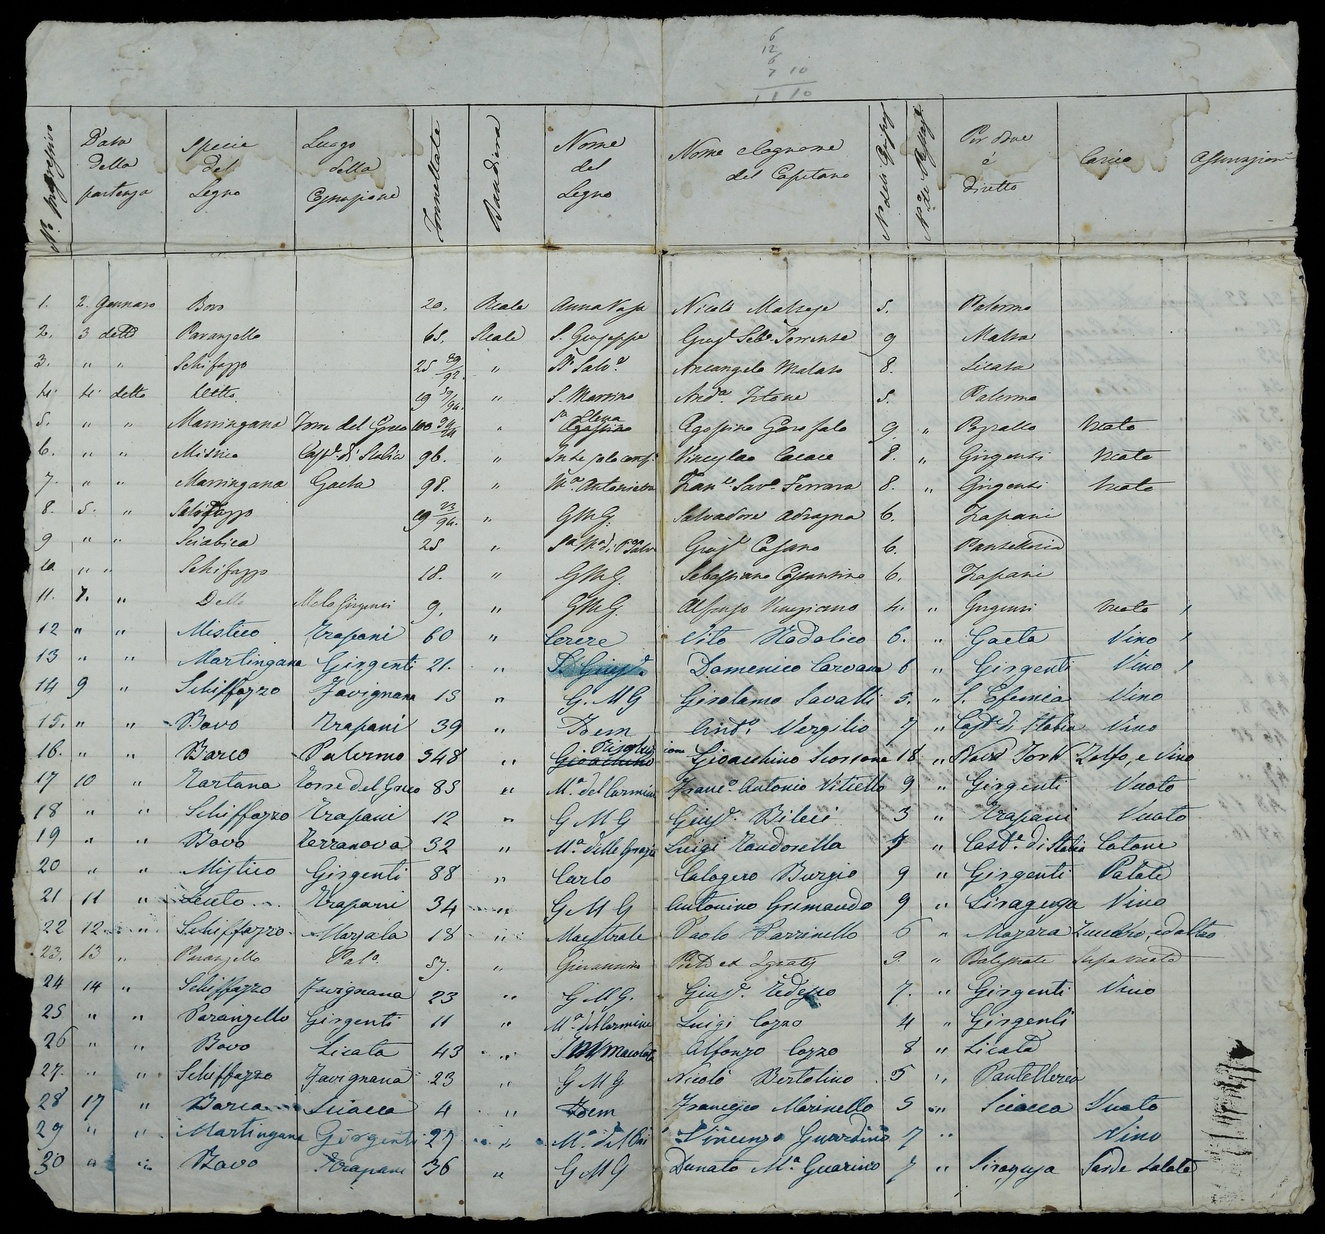 6
12
6
7 10
1 1 10
N.° progressivo Data della partenza Specie del Legno Luogo della Costruzione Tonnellate Bandiera Nome del Legno Nome e Cognome del Capitano N.° N.° Per dove è diretto Carico
1. 2. Gennaro Bovo 20. Reale Anna Nicolò 5. Palermo
2. 3 detto Paranzello 65. Reale S. Giuseppe Gius.e Seb.o 9 Malta
3. " " Schifazzo 25 " Salv.e Arcangelo 8. Licata
4. 4 detto detto 19 " S. Martino And.a 5. Palermo
5. " " Martingana Torre del Greco 100 " S.a Elena Agostino Agostino Garofalo 9 " Vuoto
6. " " Mistico Cast.e di Stabia 96. " Vincislao Cacace 8. " Girgenti Vuoto
7. " " Martingana Gaeta 98. " M.a Antonietta Fran.co Sav.o Ferrara 8. " Girgenti Vuoto
8. 5. " 19 23/94. " G.M.G. Salvadore Adragna 6. Trapani
9 " " Sciabica 25 " Gius.e 6.
10 " " Schifazzo 18. " G.M.G. Sebastiano Costantino 6. Trapani
11. 7. " Detto Girgenti 9. " G.M.G. Alfonzo Veneziano 4. " Girgenti Vuoto
12 " " Mistico Trapani 60 " Cerere Vito Nadalico 6. " Gaeta Vino
13 " " Martingana Girgenti 21. " S. Gius.e Domenico Carvana 6 " Girgenti Vino
14 9 " Schiffazzo Favignana 15 " G. M G Girolamo Savalli 5. " S. Efemia Vino
15. " " Bovo Trapani 39 " Idem And.o Vergilio 7 " Cast.e di Stabia Vino
16. " " Barco Palermo 348 " Risoluzione Gioacchino Gioacchino 18 " Nova York Zolfo, e vino
17 10 " Tartana Torre del Greco 85 " M.a del Carmine Franc.o Antonio Vitiello 9 " Girgenti Vuoto
18 " " Schiffazzo Trapani 12 " G M G Gius.e Bileci 3 " Trapani Vuoto
19 " " Bovo Terranova 32 " M.a delle Grazie Luigi " Cast.e di Stabia Cotone
20 " " Mistico Girgenti 88 " Carlo Calogero Burgio 9 " Girgenti Patate
21 11 " Leuto Trapani 34 " G M G Antonino Grimaudo 9 " Siragusa Vino
22 12 " Schiffazzo Marsala 18 " Maestrale Paolo Parrinello 6 " Mazara Zucchro, ed altro
23. 13 " Paranzello Pal.o 57. " Giovannino 9. "
24 14 " Schiffazzo Favignana 23 " G M G. Gius.e Tedesco 7. " Girgenti Vino
25 " " Paranzello Girgenti 11 " M.a del Carmine Luigi Cozzo 4 " Girgenti
26 " " Bovo Licata 43 " Immacolata Alfonzo Cozzo 8 " Licata
27 " " Schiffazzo Favignana 23 " G M G Nicolò Bertolino 5 " Pantelleria
28 17 " Barca Sciacca 4 " Idem Francesco Marinello 5 " Sciacca Vuoto
29 " " Martingana Girgenti 27 " Vincenzo Guardino 7 " Vino
30 " " Bovo Trapani 36 " G M G Donato M.a Guarino 7 " Siragusa Sarde salate